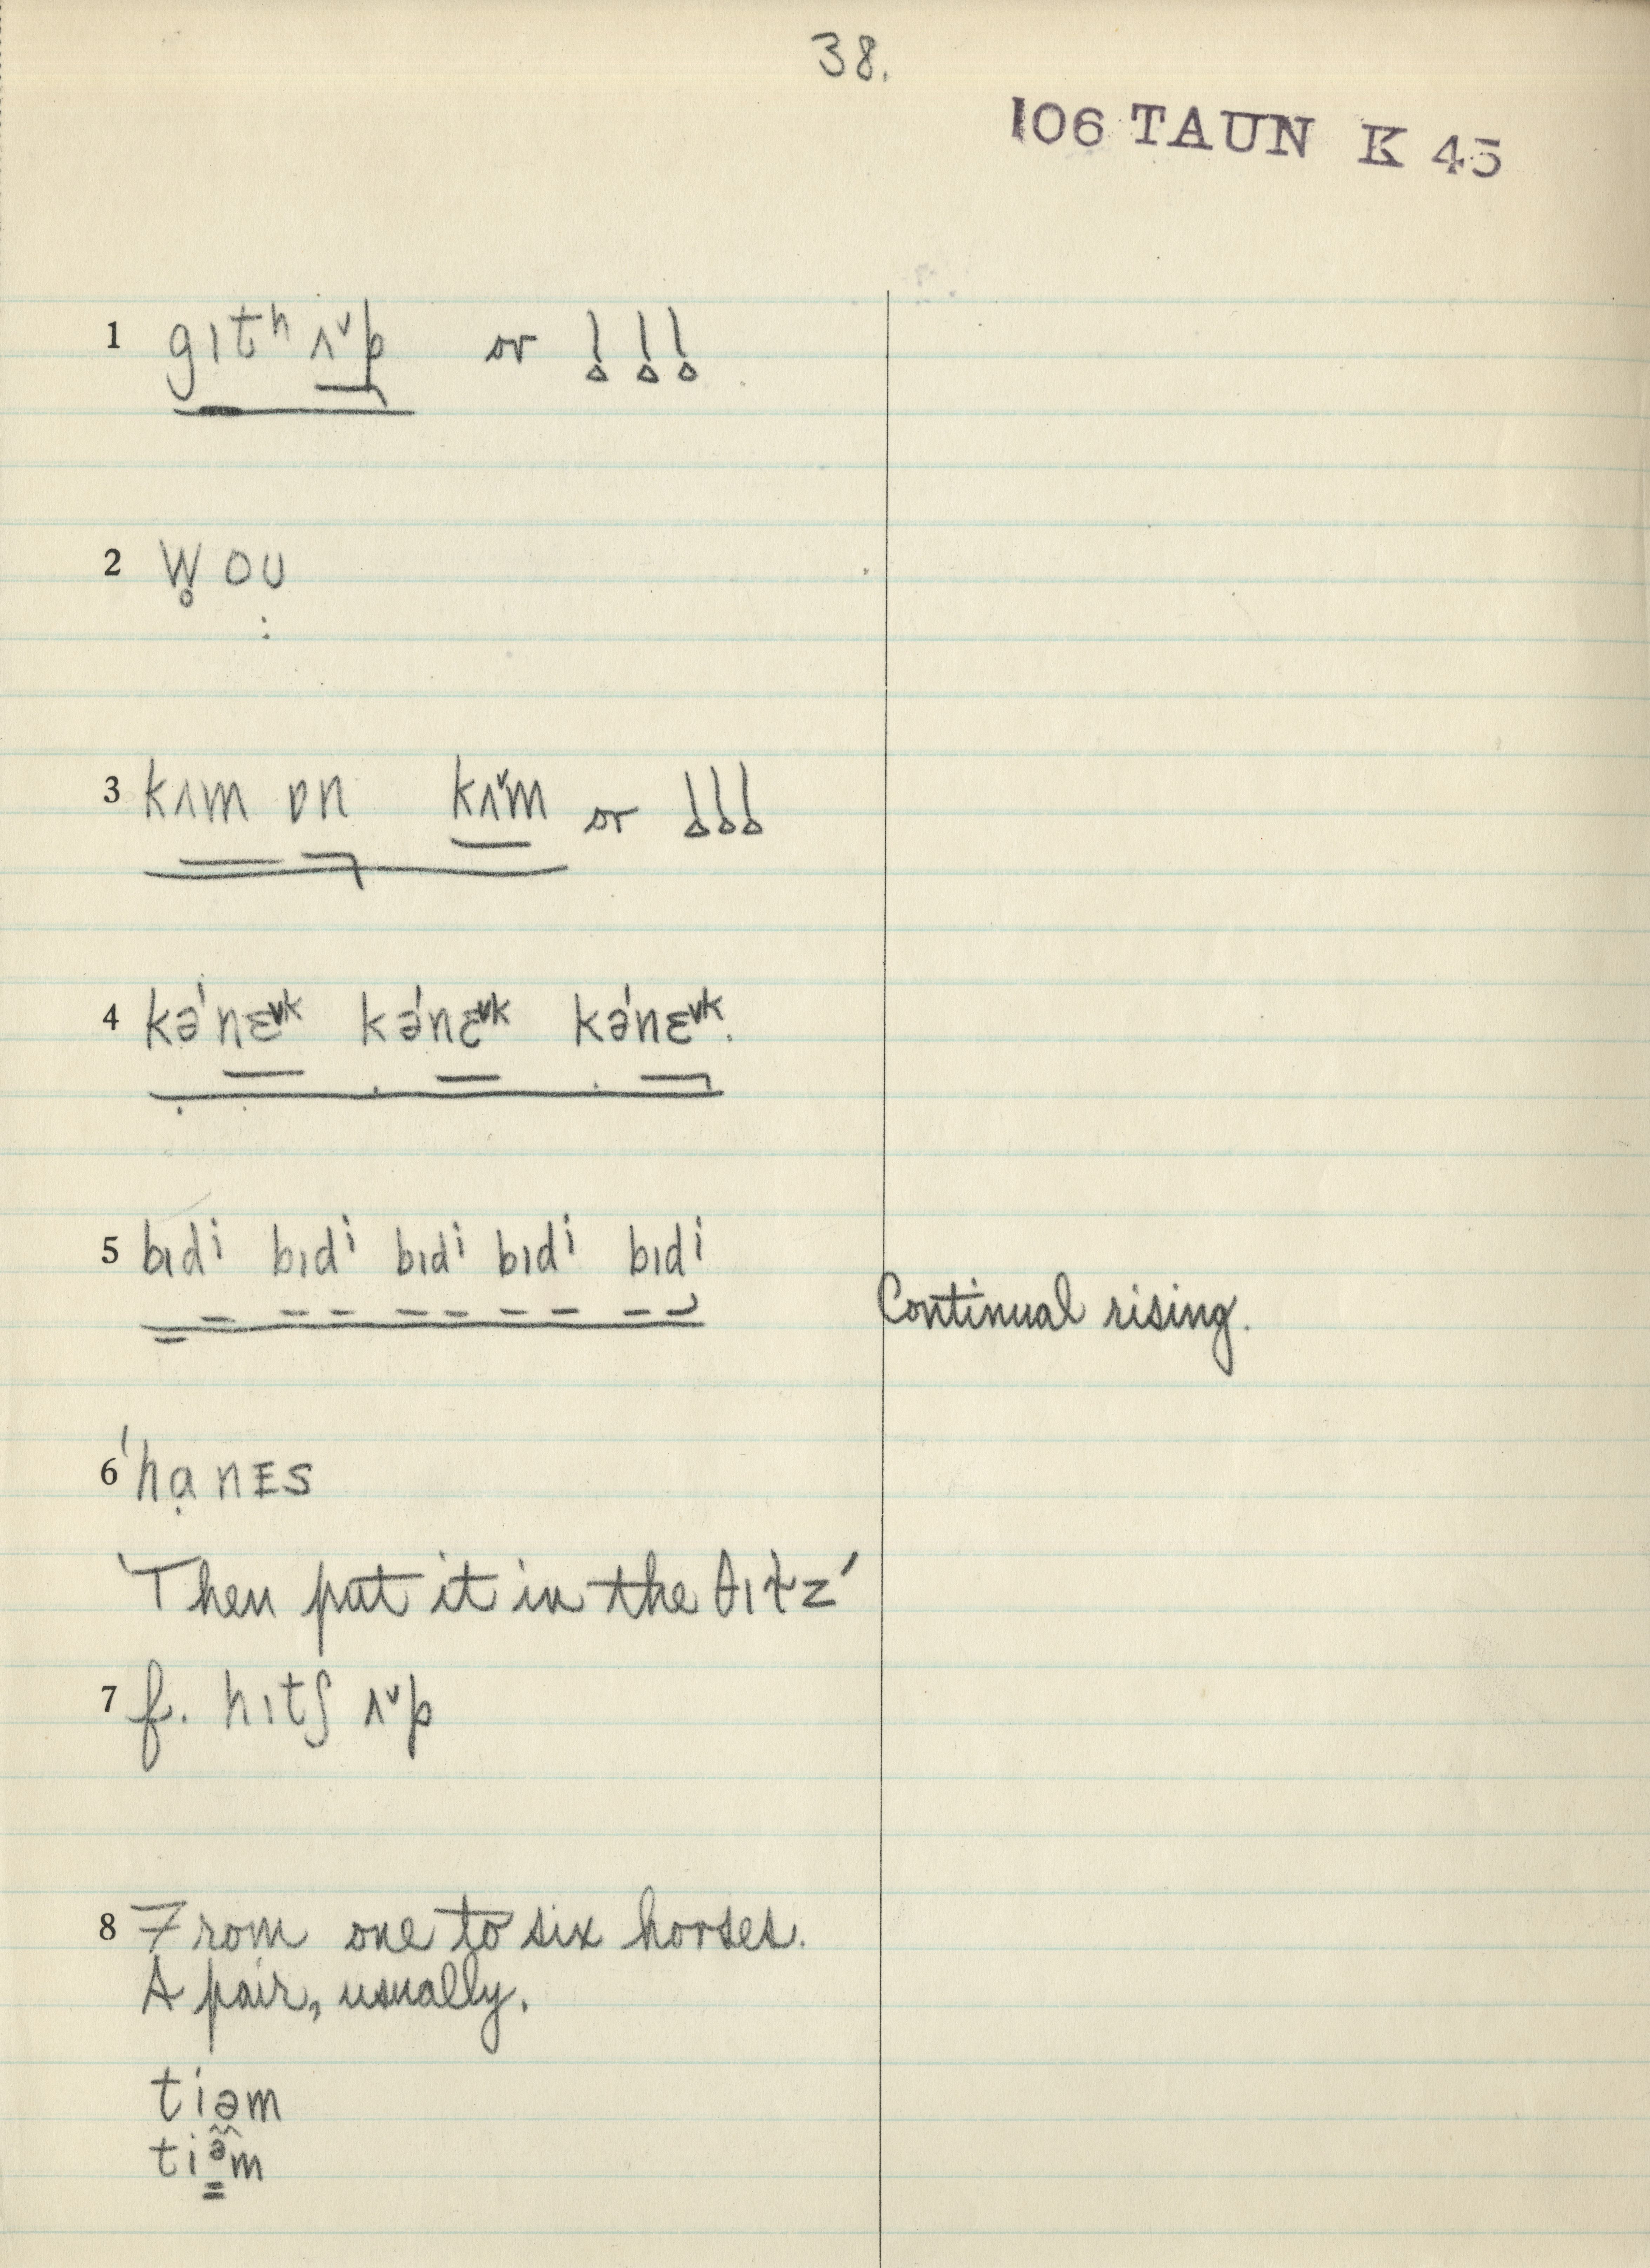 38.
106 TAUN K 45
1 gɪtʰ ʌᵛp or ! ! !
2 w̥ ou
3 kʌm ɒn kʌᵛm or ! ! !
4 kə'nɛᵛᵏ kə'nɛᵛᵏ kə'nɛᵛᵏ.
5 bɪdⁱ bɪdⁱ bɪdⁱ bɪdⁱ bɪdⁱ
Continual rising.
6 'hạnEs
'Then put it in the
7 f. hɪtʃ ʌᵛp
8 From one to six horses.
A pair, usually.
tiəm
tiᵊm